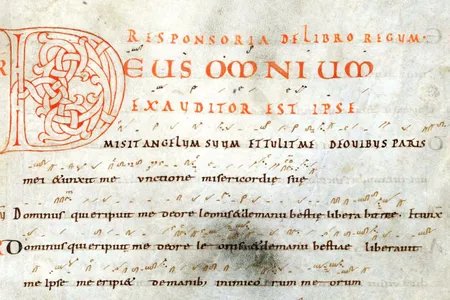 RESPONSORIA DE LIBRO REGUM.
R DEUS OMNIUM
EXAUDITOR EST IPSE
MISIT ANGELUM SUUM ET TULIT ME DE OVIBUS PATRIS
mei & unxit me unctione misericordię suę
Dominus qui eripuit me de ore leonis & de manu bestię liberavit me
Dominus qui eripuit me de ore leonis & de manu bestiae liberavit
me Ipse me eripi& de manib; inimicorum meorum